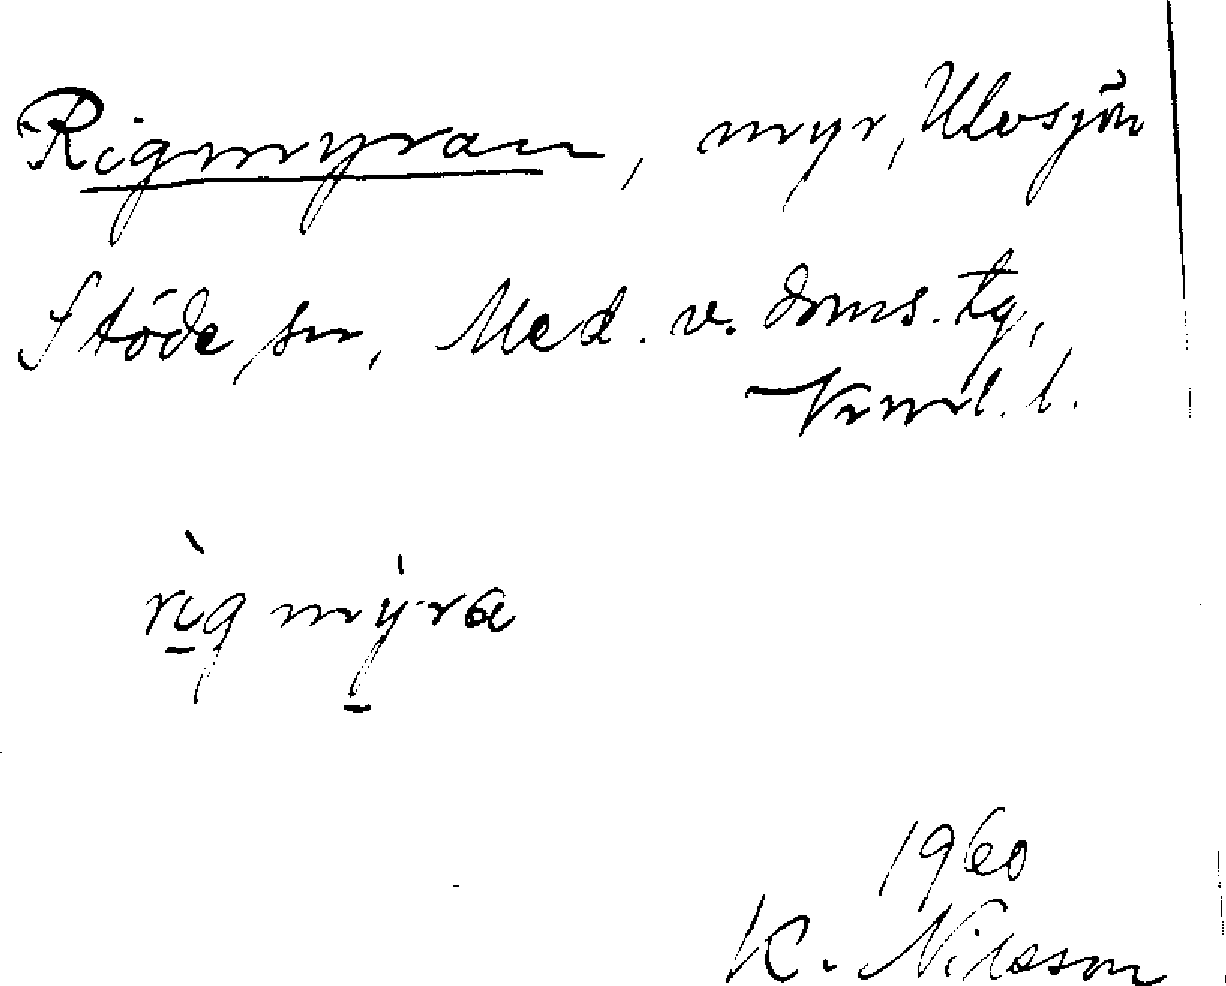 Rigmyran, myr, Ulvsjön
Stöde sn, Med. v. doms. tg,
Vnrl. l.
rigmyra
1960
K. Nilsson